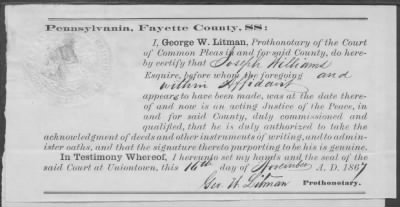 Pennsylvania, Fayette County, SS:
I, George W. Litman, Prothonotary of the Court
of Common Pleas in and for said County, do here-
by certify that Joseph Williams
Esquire, before whom the foregoing and
within Affidavit
appears to have been made, was at the date there-
of and now is an acting Justice of the Peace, in
and for said county, duly commissioned and
qualified, that he is duly authorized to take the
acknowledgment of deeds and other instruments of writing, and to admin-
ister oaths, and that the signature thereto purporting to be his is genuine.
In Testimony Whereof, I hereunto set my hand and the seal of the
said Court at Uniontown, this 16th day of November A. D. 1867
Geo. W. Litman Prothonotary.